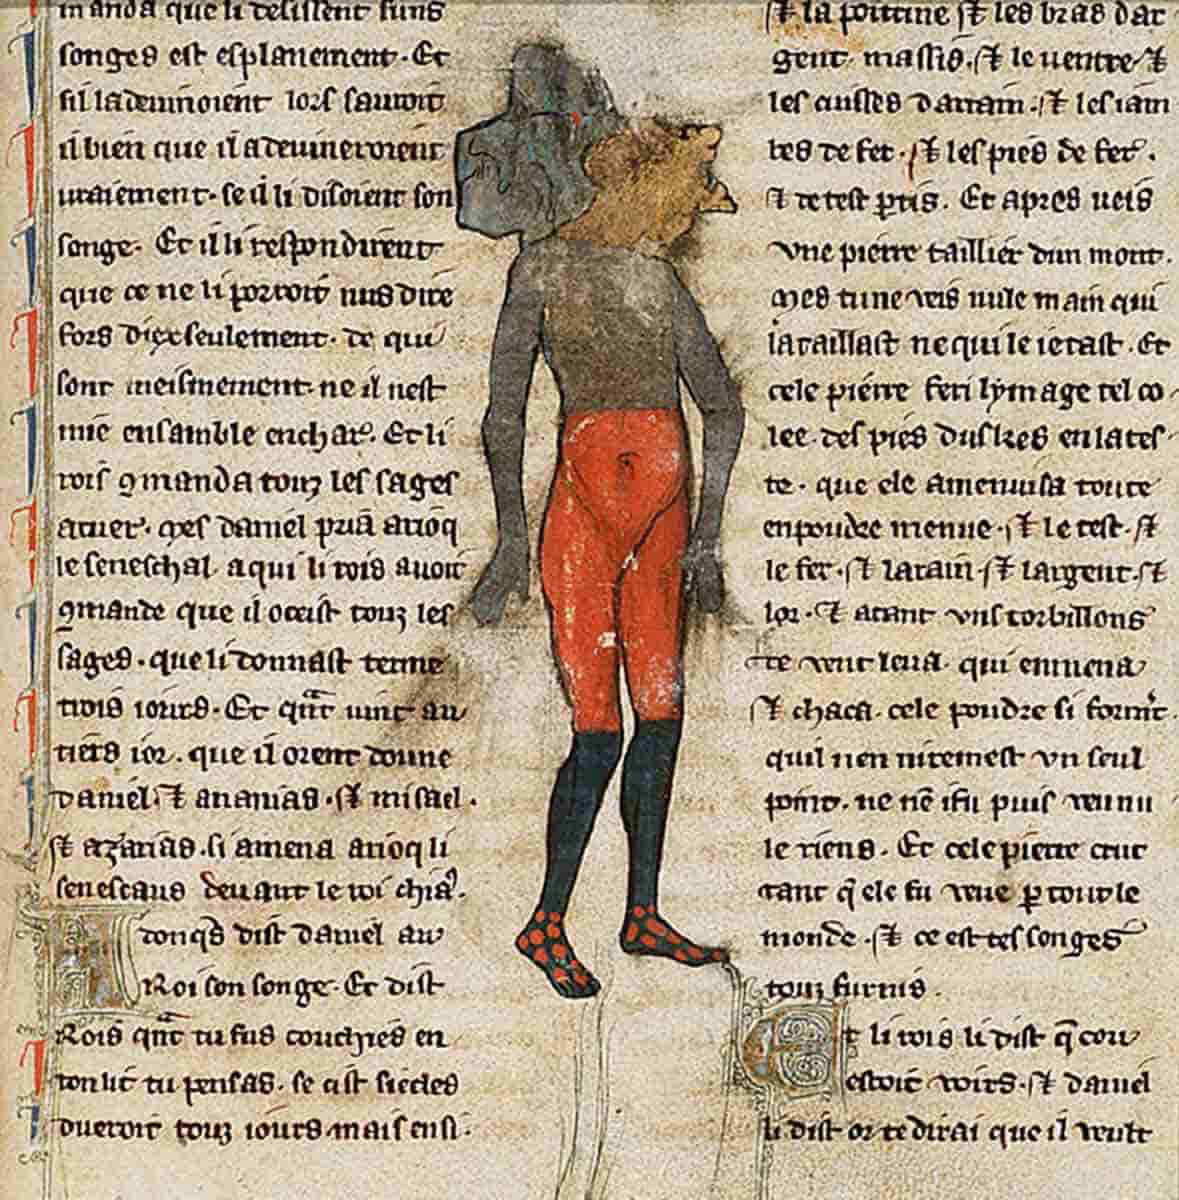 manda que li deissent leurs
songes est esplanement. Et
sil ladevinoient lors savroit
il bien que il a devineroient
vraiement. se il li disoient son
songe. Et il li respondirent
que ce ne li porroit nus dire
fors diex seulement. de qui
sont meismement. ne il nest
mie ensamble enchar̾. Et li
rois ꝯmanda touz les sages
atuer. Mes daniel pria arioq
le seneschal. a qui li rois avoit
ꝯmande que il oceist touz les
sages. que li donnast terme
trois iours. Et qͣt vint au
tiers ior. que il orent donne
daniel. ⁊ ananias. ⁊ misael.
⁊ azarias. si amena arioq li
senescaus devant le roi
A donqs dist daniel au
Roi son songe. Et dist
Rois qͣt tu fus couchies en
ton lit tu pensas. se cist siecles
dueroit touz iours mais ensi.
⁊ la poitrine ⁊ les bras dar
gent. massis. ⁊ le ventre ⁊
les cuisses darrain. ⁊ les iam
bes de fer. ⁊ les pies de fer.
⁊ de test ꝑtis. Et apres veis
vne pierre taillier dun mont.
Mes tu ne veis nule main qui
la taillast ne qui le ietast. Et
cele pierre feri lymage tel co
lee. des pies duskes en la tes
te. que ele amenuisa toute
en poudre menue. ⁊ le test. ⁊
le fer. ⁊ larain. ⁊ largent. ⁊
lor. ⁊ atant vns torbillons
de vent leva. qui enmena
⁊ chaca. cele poudre si forment.
quil nen remest vn seul
point. ne nē fu puis venu
le riens. Et cele pierre crut
tant q̄ ele fu veue ꝑ tout le
monde. ⁊ ce est tes songes
touz furnis.
Et li rois li dist q̄ cou
estoit voirs. ⁊ daniel
li dist or te dirai que il veult